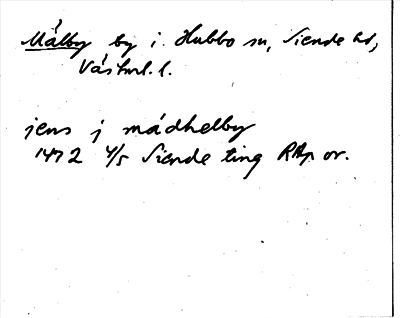 Målby by i. Hubbo sn, Siende hd,
Västml. l.
jens j mádhelby
1472 4/5 Siende ting RAp or.